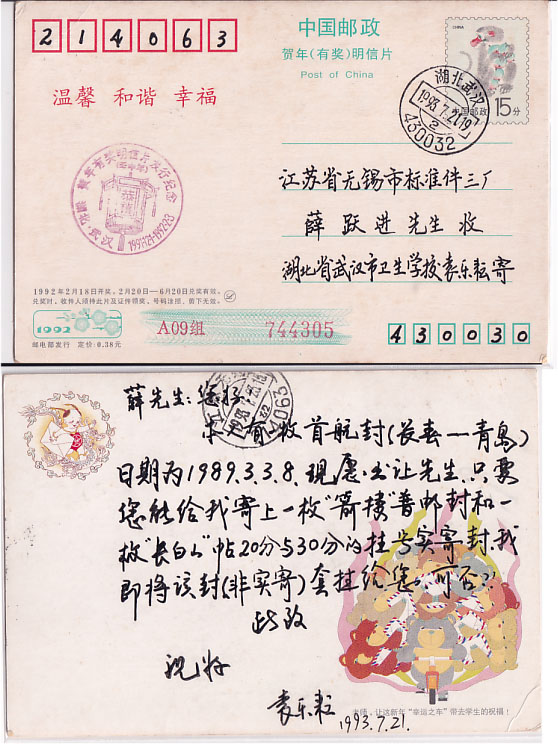 214063
中国邮政
贺年(有奖)明信片
Post of China
CHINA
15分
中国邮政
湖北武汉
1993.7.21.19
430032
温馨 和谐 幸福
贺年有奖明信片发行纪念
武汉
江苏省无锡市标准件三厂
薛跃进先生收
湖北省武汉市卫生学校袁乐耘寄
1992年2月18日开奖。2月20日—6月20日兑奖有效。
兑奖时,收件人须持此片及证件领奖。号码涂损、剪下无效。
1992
A09组 744305
邮电部发行 定价:0.38元
430030
薛先生:您好
本有枚首航封(长春—青岛)
日期为1989.3.38.现愿出让先生.只要
您能给我寄上一枚“箭楼”普邮封和一
枚“长白山”帖20分与30分的挂号实寄封.我
即将该封(非实寄)套挂给您.可否?
此致
祝好
袁乐耘
1993.7.21.
老师,让这新年“幸运之车”带去学生的祝福!